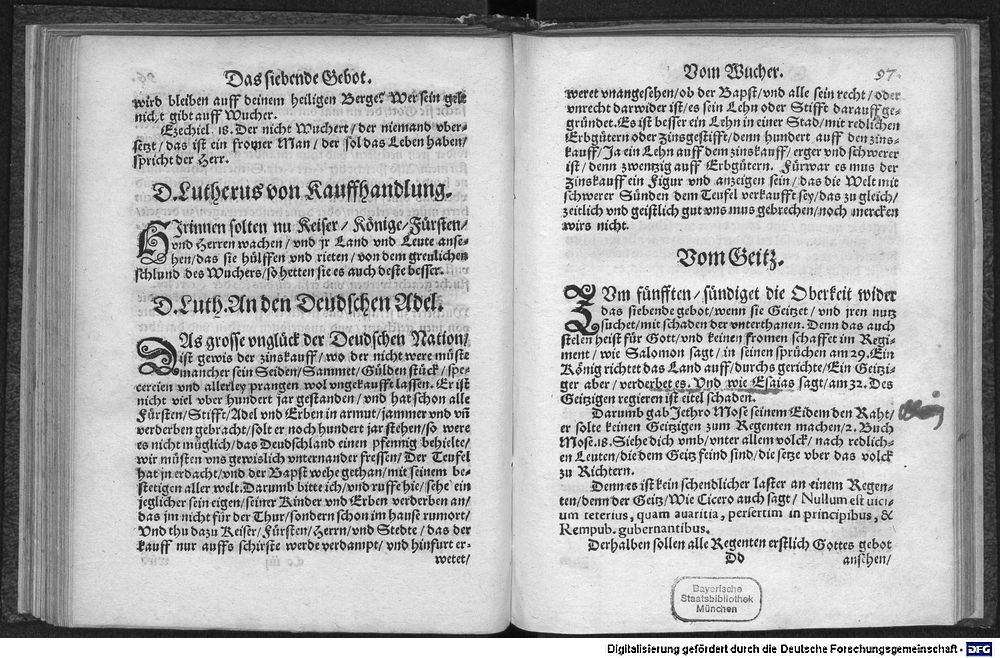 Das siebende Gebot.
wird bleiben auff deinem heiligen Berge? Wer sein gelt
nicht gibt auff Wucher.
Ezechiel 18. Der nicht Wuchert/ der niemand vber-
setzt/ das ist ein fromer Man/ der sol das Leben haben/
spricht der Herr.
D. Lutherus von Kauffhandlung.
HIrinnen solten nu Keiser/ Könige/ Fürsten/
vnd Herren wachen/ vnd jr Land vnd Leute anse-
hen/ das sie hülffen vnd rieten/ von dem greulichen
schlund des Wuchers/ so hetten sie es auch deste besser.
D. Luth. An den Deudschen Adel.
DAs grosse vnglück der Deudschen Nation/
ist gewis der zinskauff/ wo der nicht were müste
mancher sein Seiden/ Sammet/ Gülden stück/ spe-
cereien vnd allerley prangen wol vngekaufft lassen. Er ist
nicht viel vber hundert jar gestanden/ vnd hat schon alle
Fürsten/ Stifft/ Adel vnd Erben in armut/ jammer vnd vñ
verderben gebracht/ solt er noch hundert jar stehen/ so were
es nicht müglich/ das Deudschland einen pfennig behielte/
wir müsten vns gewislich vnternander fressen/ Der Teufel
hat jn erdacht/ vnd der Bapst wehe gethan/ mit seinem be-
stetigen aller welt. Darumb bitte ich/ vnd ruffe hie/ sehe ein
jeglicher sein eigen/ seiner Kinder vnd Erben verderben an/
das jm nicht für der Thur/ sondern schon im hause rumort/
Vnd thu dazu Keiser/ Fürsten/ Herrn/ vnd Stedte/ das der
kauff nur auffs schirste werde verdampt/ vnd hinfurt er-
wetet/
Vom Wucher.
97.
weret vnangesehen/ ob der Bapst/ vnd alle sein recht/ oder
vnrecht darwider ist/ es sein Lehn oder Stifft darauff ge-
gründet. Es ist besser ein Lehn in einer Stad/ mit redlichen
Erbgütern oder Zinsgestifft/ denn hundert auff den zins-
kauff/ Ja ein Lehn auff dem zinskauff/ erger vnd schwerer
ist/ denn zwentzig auff Erbgütern. Fürwar es mus der
Zinskauff ein Figur vnd anzeigen sein/ das die Welt mit
schwerer Sünden dem Teufel verkaufft sey/ das zu gleich/
zeitlich vnd geistlich gut vns mus gebrechen/ noch mercken
wirs nicht.
Vom Geitz.
ZVm fünfften/ sündiget die Oberkeit wider
das siebende gebot/ wenn sie Geitzet/ vnd jren nutz
suchet/ mit schaden der vnterthanen. Denn das auch
stelen heist für Gott/ vnd keinen fromen schaffet im Regi-
ment/ wie Salomon sagt/ in seinen sprüchen am 29. Ein
König richtet das Land auff/ durchs gerichte/ Ein Geitzi-
ger aber/ verderbet es. Vnd wie Esaias sagt/ am 32. Des
Geitzigen regieren ist eitel schaden.
Darumb gab Jethro Mose seinem Eidem den Raht/
er solte keinen Geitzigen zum Regenten machen/ 2. Buch
Mose. 18. Siehe dich vmb/ vnter allem volck/ nach redlich-
en Leuten/ die dem Geitz feind sind/ die setze vber das volck
zu Richtern.
Denn es ist kein schendlicher laster an einem Regen-
ten/ denn der Geitz/ Wie Cicero auch sagt/ Nullum est uici-
um teterius, quam auaritia, persertim in principibus, &
Rempub. gubernantibus.
Derhalben sollen alle Regenten erstlich Gottes gebot
Dd
ansehen/
Bayerische
Staatsbibliothek
München
Digitalisierung gefördert durch die Deutsche Forschungsgemeinschaft - DFG